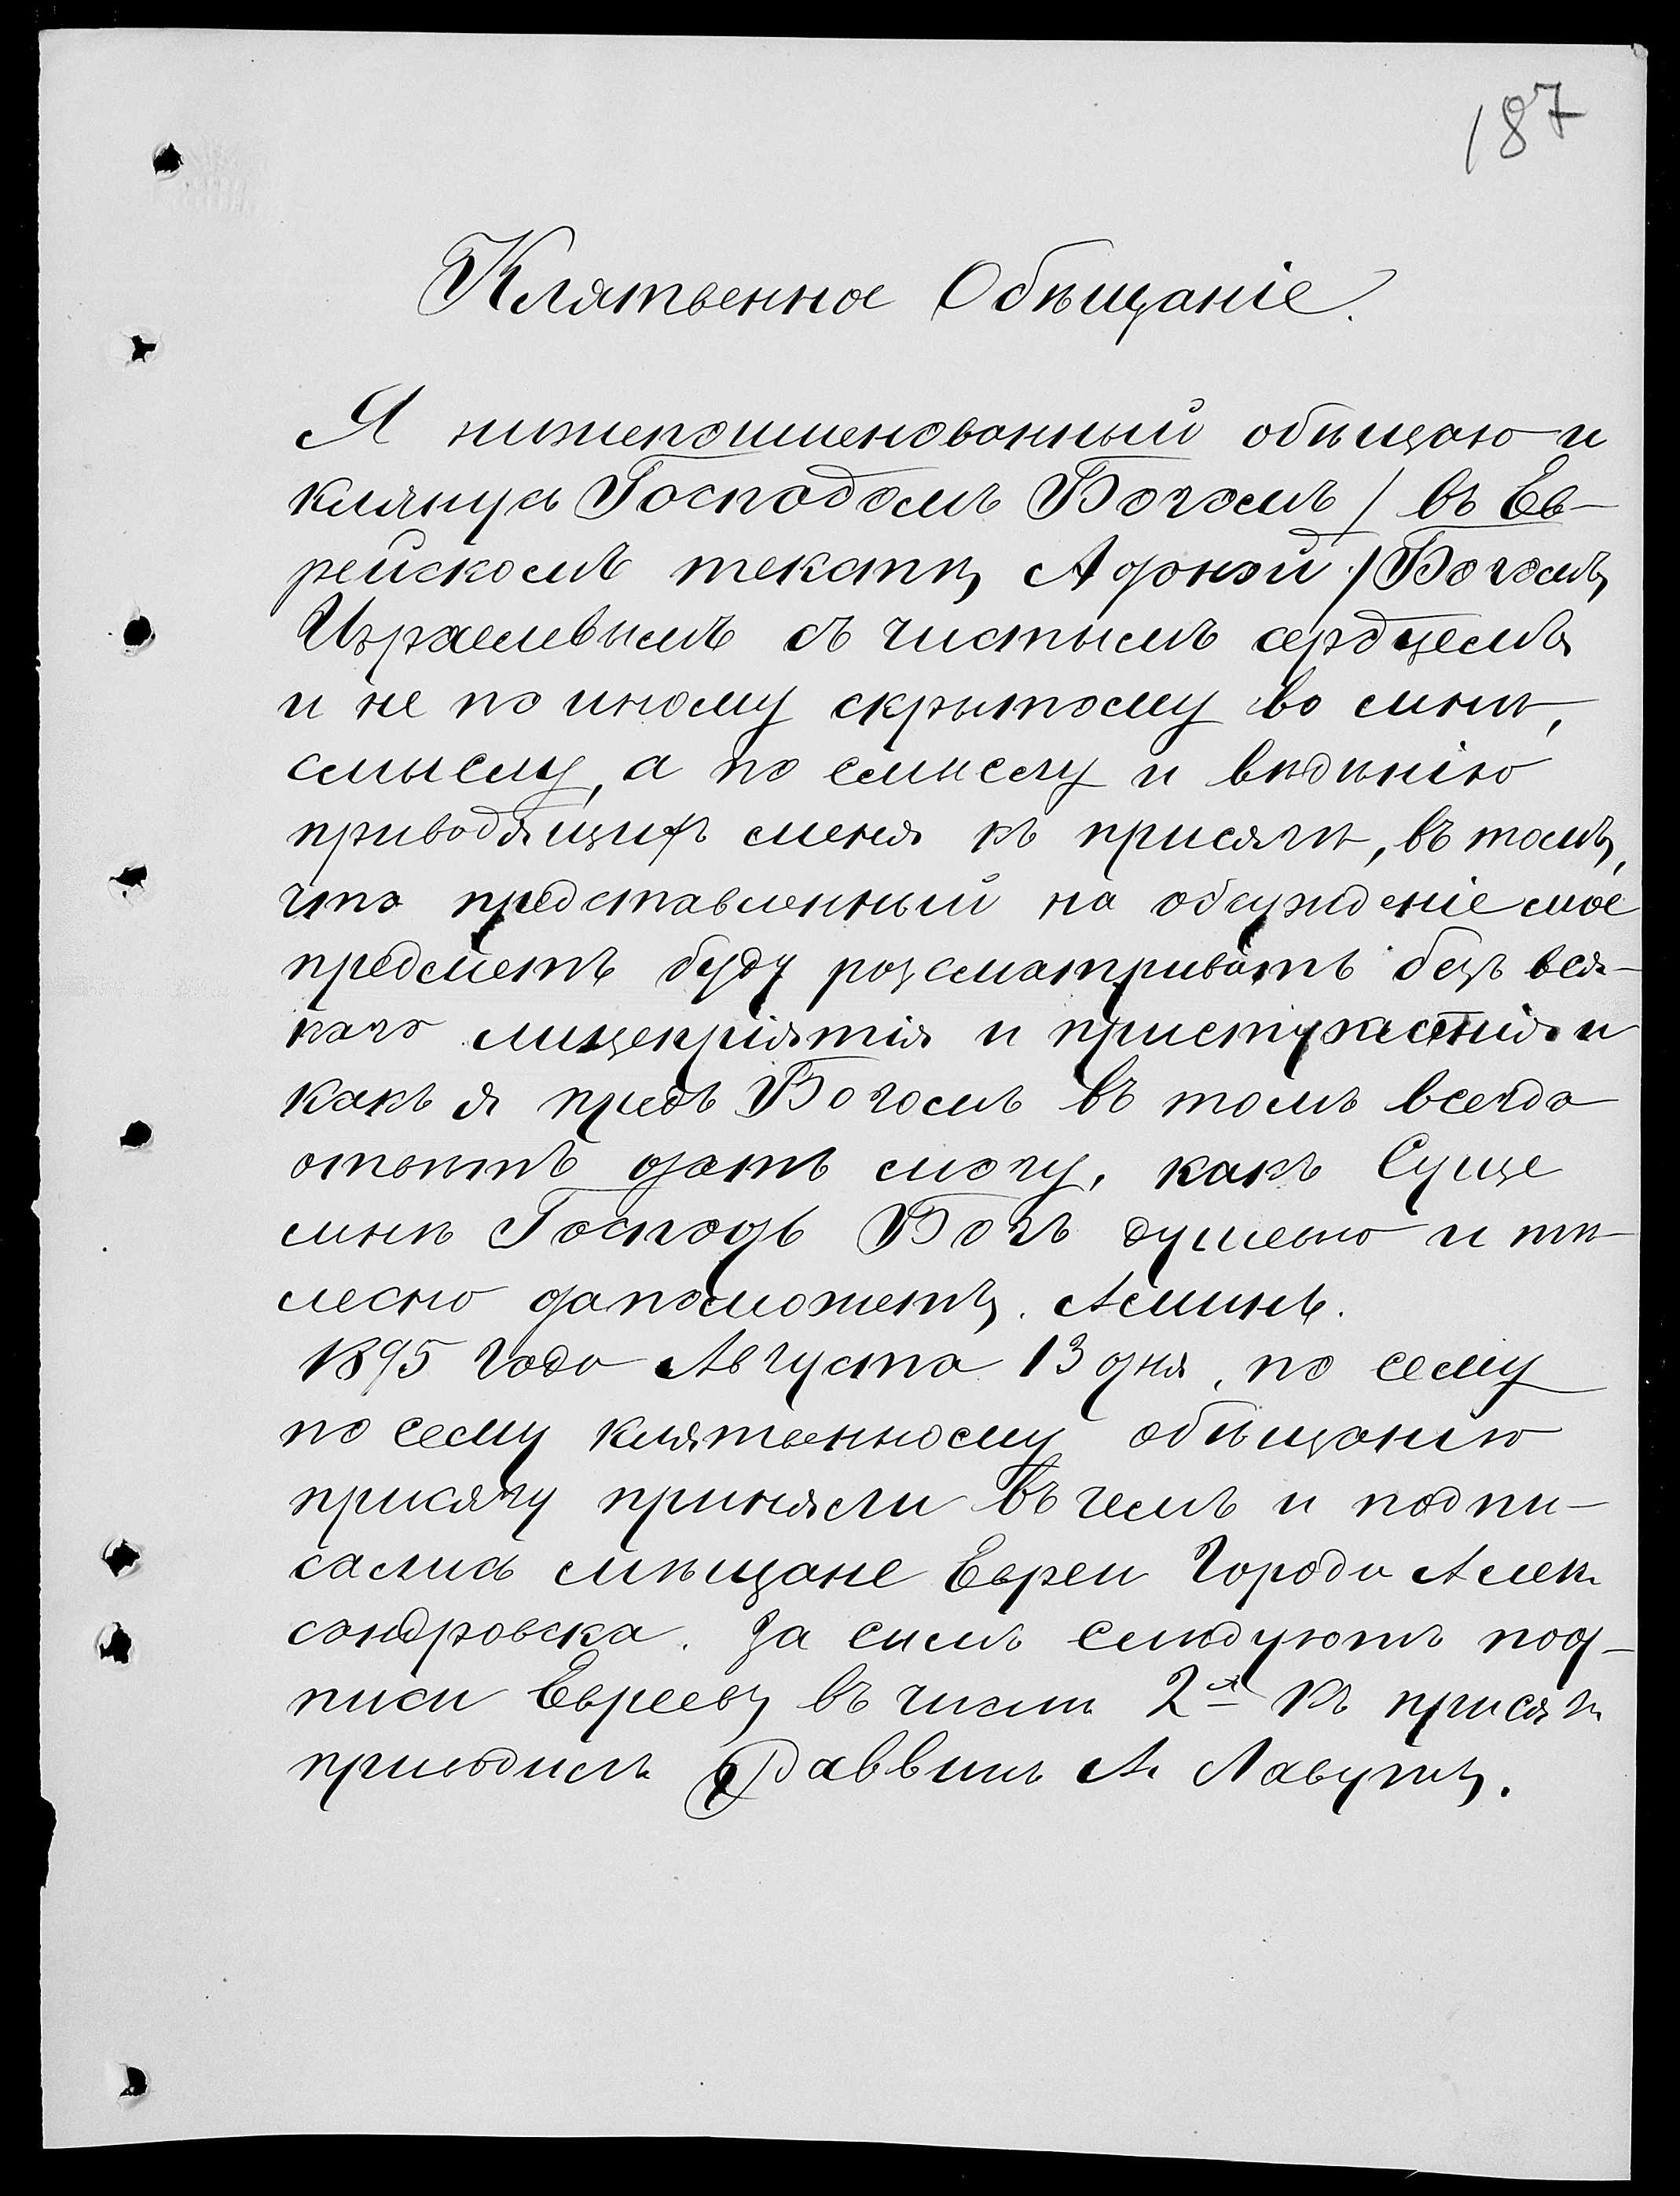 187
Клятвенное Обѣщаніе.
Я нижепоименованный обѣщаю и
клянусь Господомъ Богомъ / въ Ев-
рейскомъ текстѣ Адонай / Богомъ
Израелевымъ съ чистымъ сердцемъ
и не по иному скрытому во мнѣ,
смыслу, а по смыслу и вѣдѣнію
приводящихъ меня къ присягѣ, въ томъ,
что представленный на обсужденіе мое
предметъ буду разсматривать безъ вся-
каго лицепріятія и
какъ я предъ Богомъ въ томъ всегда
отвѣтъ дать могу, какъ Суще
мнѣ Господь Богъ душевно и тѣ-
лесно да поможетъ. Аминь.
1895 года Августа 13 дня, по сему
по сему клятвенному обѣщанію
присягу приняли въ чемъ и подпи-
сались мѣщане Евреи Города Алек-
сандровска. За симъ слѣдуютъ под-
писи Евреевъ въ числѣ 2х къ присягѣ
приводилъ Раввинъ А. Лавутъ.